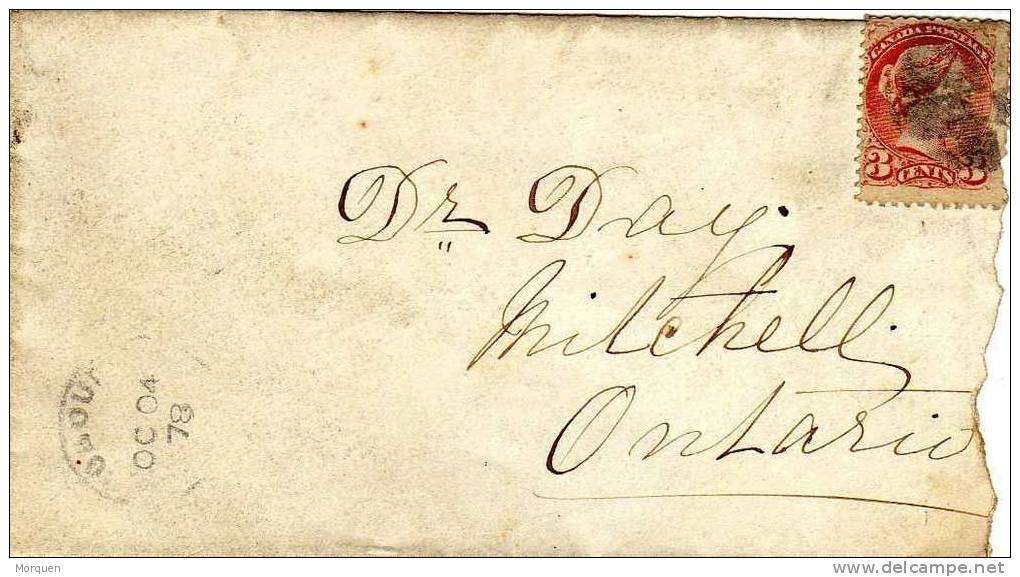 CANADA POSTAGE
3 CENTS 3
Dr Day.
Mitchell.
Ontario
OC 04
78
Morquen
delcampe.net